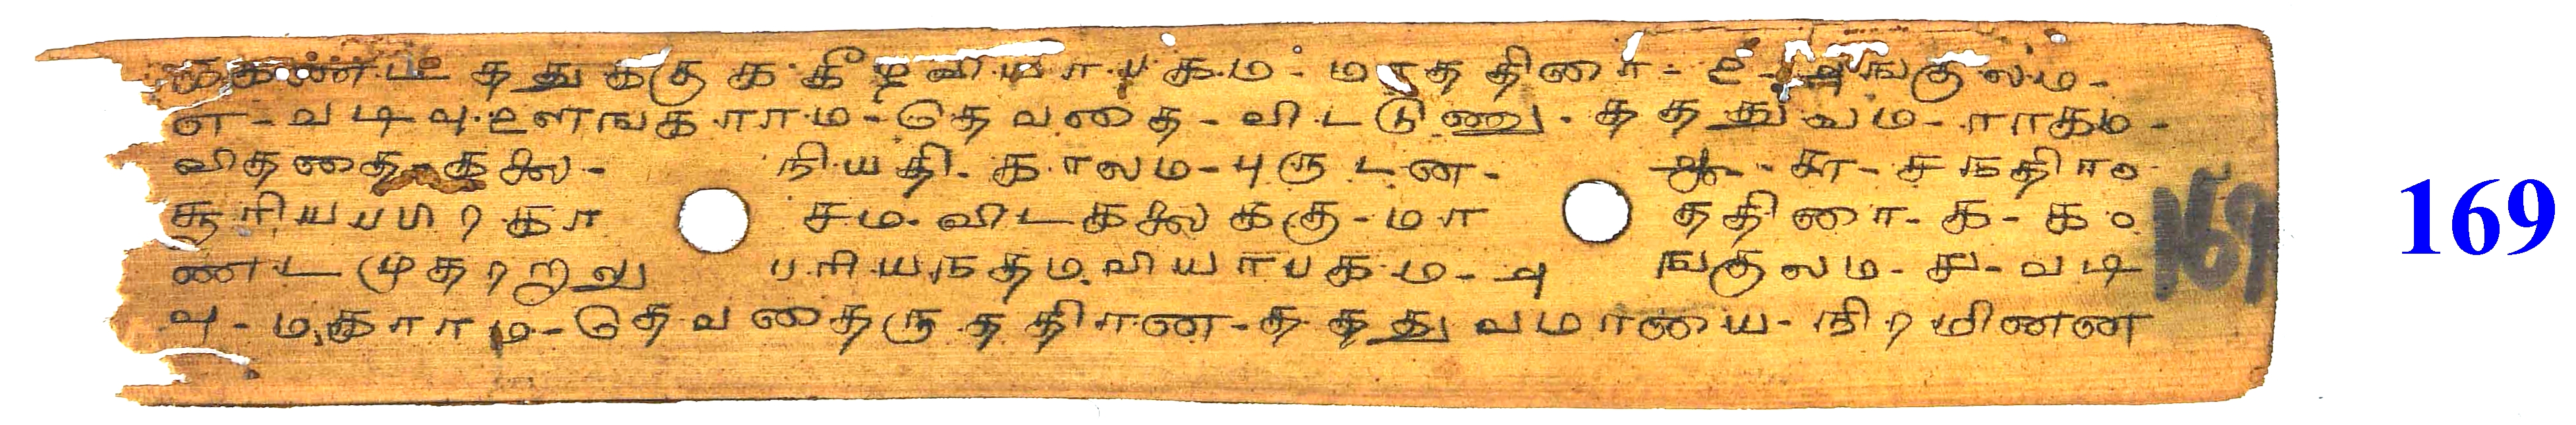 கண்ட தது ககு க கீழ வியாபகம - மாத திரை - உ - அங்குலம -
எ - வடிவு உளஙகாரம - தெவதை - விடடுணு - தததுவம - ராகம -
விததை - கலை - நியதி - காலம - புருடன - ஆ - கா - சநதிர
சூரியபபிரகா சம - விடகலைககு - மா ததிரை - க - க ௦
ணடமுதறறு பரியநதம வியாபகம - அ ஙகுலம - சு - வடி
வு - மகாரம - தெவதைருததிரன - தததுவமாயை - நிரமினன
169